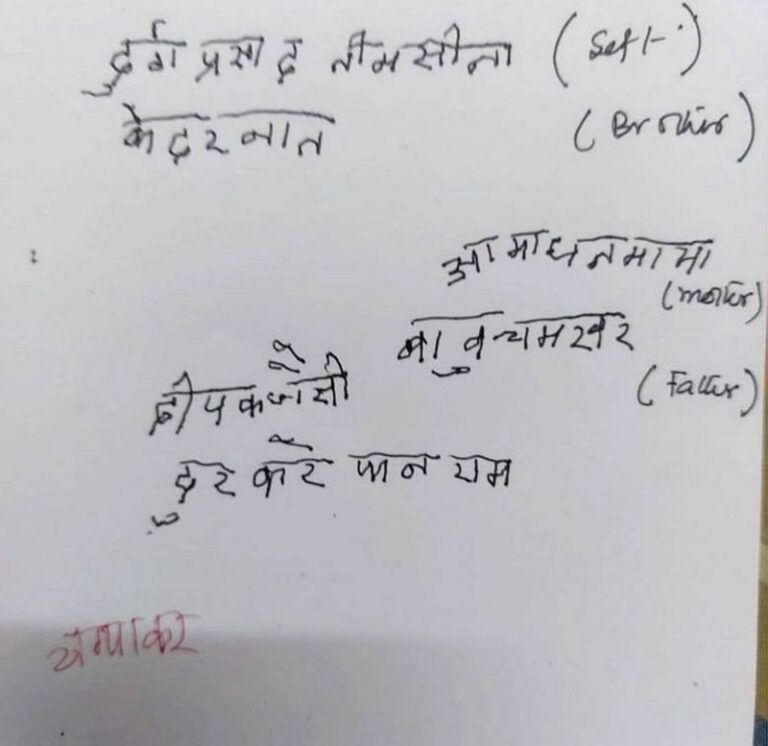 दुर्ग प्रसाद तीमसीना (Self-)
केदरनात (Brother)
आमाधनमाया (mother)
बाबु
(Father)
दीपकजोसी
दुर करे पान राम